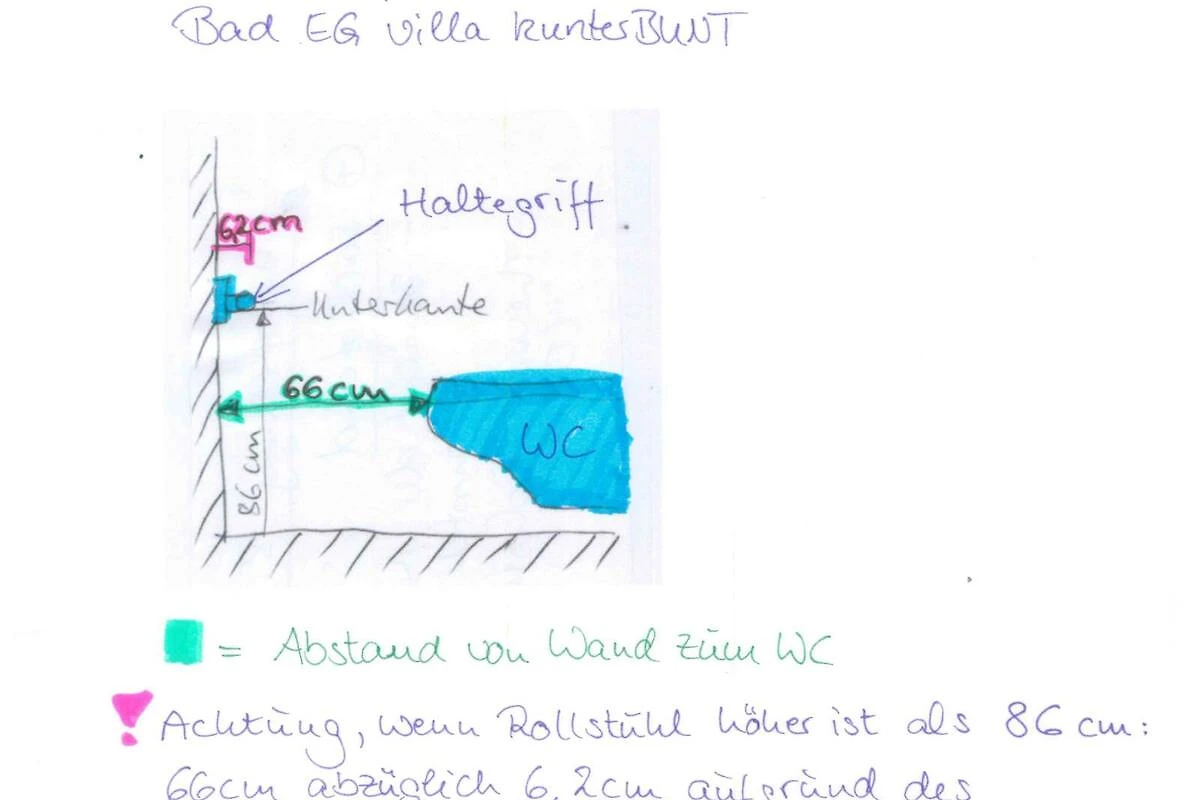 Bad EG Villa KunterBUNT
6,2cm
Haltegriff
Unterkante
66cm
WC
86cm
= Abstand von Wand zum WC
! Achtung, wenn Rollstuhl höher ist als 86cm:
66cm abzüglich 6,2cm aufgrund des